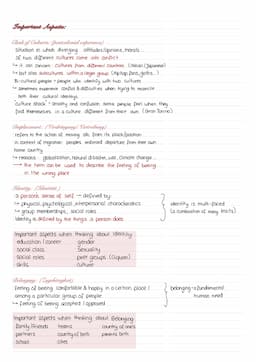 Important Aspects:
Clash of Cultures: (intercultural experience)
Situation in which diverging attitudes, opinions, morals...
of two different cultures come into conflict
↳ it can concern cultures from different countries
↳ but also subcultures within a larger group
Bi-cultural people - people who identify with two cultures
↳ sometimes experience conflict & difficulties when trying to reconcile
both their cultural identitys
"culture shock" - anxiety and confusion some people feel when they
find themselves in a culture different from their own
Displacement:
refers to the action of moving sth. from its place/position
in context of migration: people's enforced departure from their own
home country
↳ reasons: globalization, natural disaster, war, climate change...
→ the term can be used to describe the feeling of being
in the wrong place
Identity:
a person's sense of self → defined by
↳ physical, psychological, interpersonal characteristics
↳ group memberships, social roles
identity is defined by the things a person does
identity is multi-faced
(a combination of many traits)
Important aspects when thinking about Identity:
education / career gender
social class sexuality
social roles peer groups (cliques)
skills culture
Belonging:
feeling of being comfortable & happy in a certain place /
among a particular group of people
↳ feeling of being accepted / approved
belonging = fundamental
human need
Important aspects when thinking about Belonging:
family, friends teams country of ones
partners country of birth parents birth
school cities